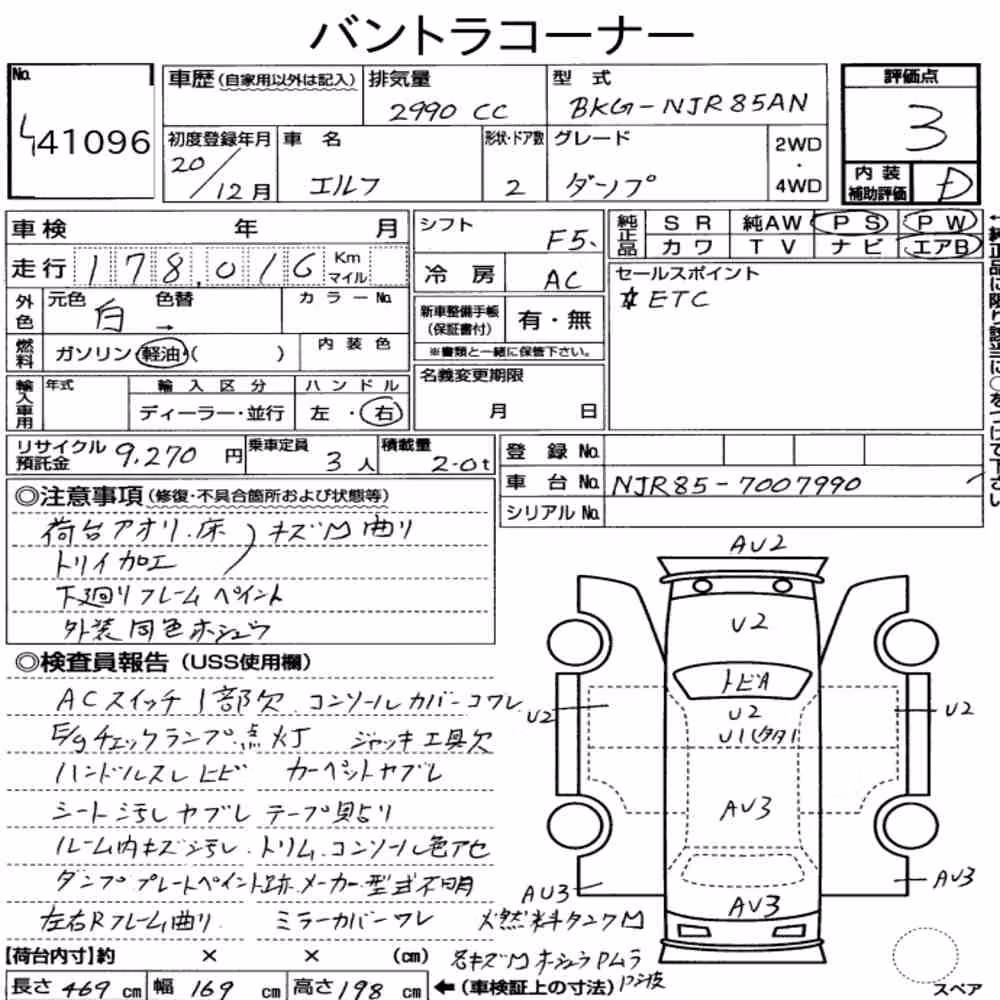 バントラコーナー
No.
41096
車歴(自家用以外は記入)
排気量
2990 CC
型 式
BKG-NJR85AN
評価点
3
初度登録年月
20/12月
車 名
エルフ
形状・ドア数
2
グレード
ダンプ
2WD
・
4WD
内装
補助評価
D
車検 年 月
走行 178,016 Km
マイル
外色
元色 白
色替 →
カラーNo.
燃料
ガソリン・軽油・( )
内装色
輸入車用
年式
輸入区分
ディーラー・並行
ハンドル
左・右
シフト
F5、
冷 房
AC
新車整備手帳
(保証書付)
有・無
※書類と一緒に保管下さい。
名義変更期限
月 日
純正品
SR 純AW PS PW
カワ TV ナビ エアB
セールスポイント
ETC
←純正品に限り該当に○をつけて下さい
リサイクル
預託金
9,270 円
乗車定員
3 人
積載量
2.0t
登 録 No.
車 台 No.
NJR85-7007990
シリアルNo.
◎注意事項(修復・不具合箇所および状態等)
荷台アオリ.床 ) キズM曲り
トリイ加工
下廻りフレームペイント
外装同色ホシュウ
◎検査員報告(USS使用欄)
ACスイッチ1部欠.コンソールカバーコワレ
E/gチェックランプ点灯 ジャッキ工具欠
ハンドルスレヒビ カーペットヤブレ
シート汚レヤブレ テープ貼り
ルーム内キズ汚レ.トリム.コンソール色アセ
ダンププレートペイント跡.メーカー型式不明
左右Rフレーム曲り. ミラーカバーワレ 燃料タンクM
名キズMホシュウPムラ
AU2
U2
トビA
U2
U2
U2
AU3
AU3
AU3
AU3
スペア
【荷台内寸】約 × × (cm)
長さ 469 cm 幅 169 cm 高さ 198 cm ←(車検証上の寸法)